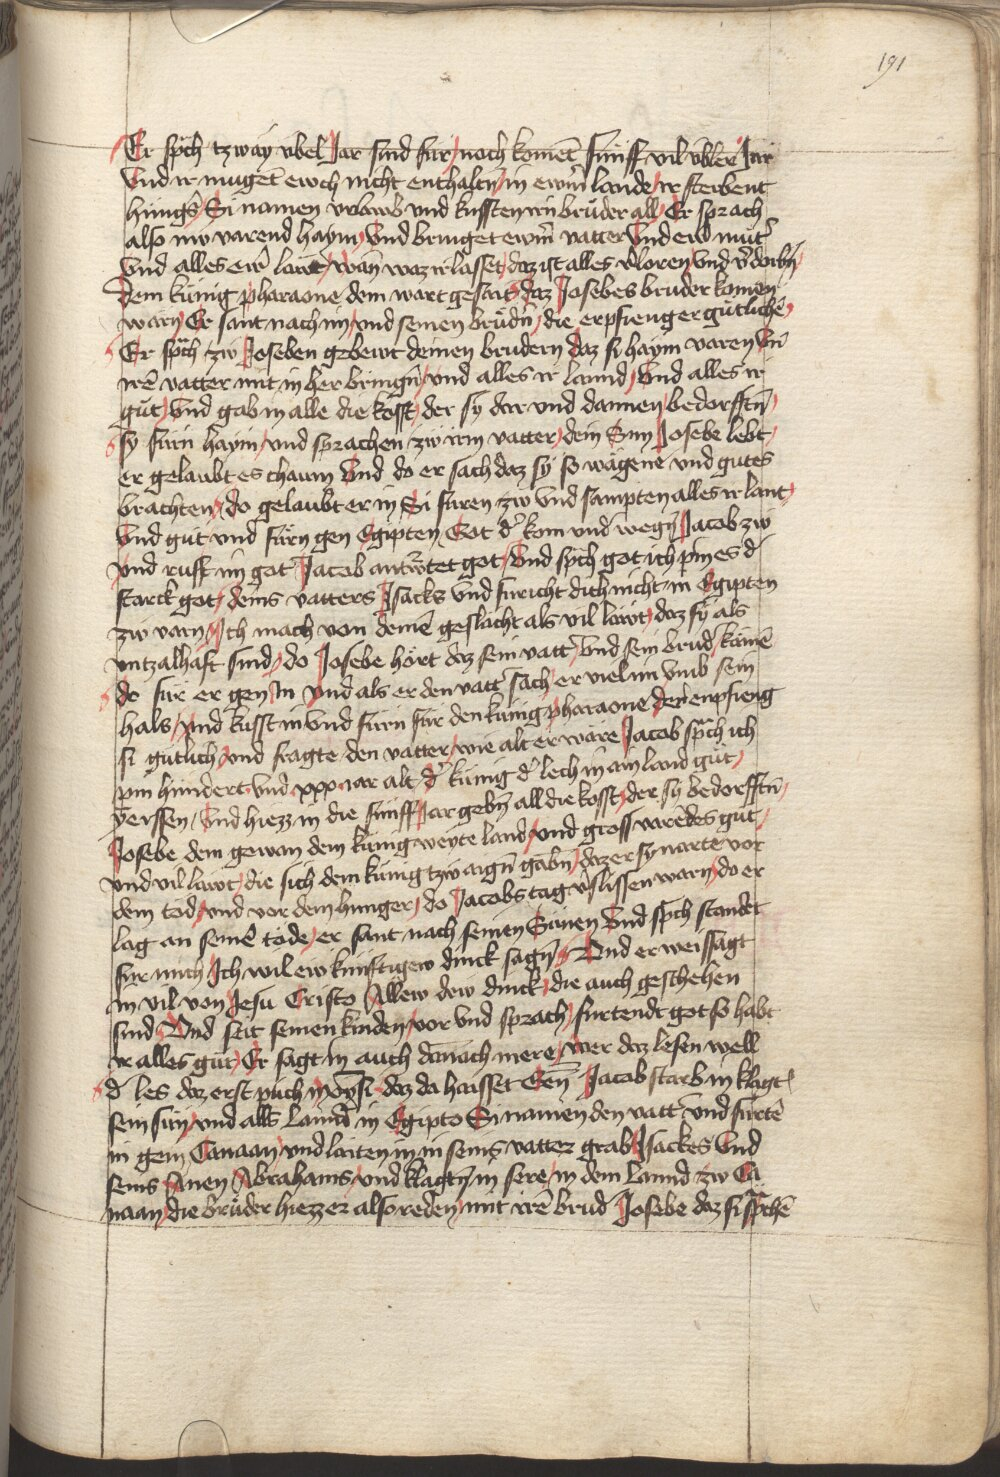 191
Er sp̄ch tzway vbel Jar sind für / noch koment fünff vil vbler Jar
Vnd ir muget ewch nicht enthaltn̄ / in ewrm̄ lande / ir sterbent
hungers / Si namen vrlawb vnd kussten irn brüder all / Er sprach
also nw varend haym / Vnd bringet ewrn̄ vatter Vnd ewr mut̄
Vnd alles ewr̄ lawt / wan̄ waz ir lasset / daz ist alles v̄loren vnd v̄dorbn̄
Dem künig pharaone dem wart gesait / daz Josebes bruder komen
warn / Er sant nach im / vnd seinen brüdn̄ / die erpfieng er gütlichē
Er sp̄ch zw Joseben gebewt deinen brudern daz si haym varen Vn̄
irē vatter mit in her bringn̄ / vnd alles ir lannd / Vnd alles ir
gut / Vnd gab in alle die kosst / der sy dar vnd dannen bedorfftn̄ /
sy furn haym / vnd sprachen zw irm vatter / dein Sun Josebe lebt /
er gelaubt es chaum Vnd do er sach daz sy so wägene vnd gutes
brachten / do gelaubt er in Si furen zw vnd sampten alles ir lant /
Vnd gut vnd fürn gen Egipten Got d̄ kom vnd̄ wegn̄ Jacob zw
vnd rufft im got Jacob antw̄rtet got / Vnd sp̄ch got ich pin es d̄
starck got / deins vatters Jsacks Vnd furicht dich nicht in Egipten
zw varn / Ich mach von deinē geslächt als vil lawt / daz sy als
vntzalhaft sind / do Josebe hört daz sein vatt̄ / Vnd sein brud̄ / kämē
do für er gen in Vnd als er den vatt̄ sach / er viel im vmb sein
hals / vnd kusst in Vnd furn für den künig pharaone der enpfieng
si gütlich / vnd fragte den vatter / wie alt er wäre Jacob sp̄ch ich
pin hundert Vnd xxx jar alt / d̄ künig d̄ lech in ain land gut /
Yerssen / Vnd hiezz in die fünff Jar gebn̄ all die kosst / der sy bedorfftn̄ /
Josebe dem gewan dem künig weyte land / vnd gross varēdes gut /
vnd vil lawt / die sich dem künig tzw aign̄ gäbn̄ / daz er sy narte vor
dem tod / vnd vor dem hunger / do Jacobs tag v̄slissen warn / do er
lag an seinē tode / er sant nach seinen Sünen Vnd sp̄ch standet
für mich / Ich wil ew künftigew dinck sagn̄ / Vnd er weissagt
in vil von Jesu Cristo Allew dew dinck / die auch geschehen
sind Vnd seit seinen kinden / vor vnd sprach / furtendt got so habt
ir alles gut / Er sagt in auch danach mere / wer daz lesen well
d̄ les daz erst puch moysi / daz da haisset Gen̄ Jacob starb in klagt
sein sün / vnd alls lannd in Egipto Si namen den vatt̄ vnd furtē
in gein Canaan / vnd laiten in in seins vatter grab Jsackes Vnd
seins Anen Abrahams / vnd klagtn̄ in sere / in dem lannd zw Ca
naan / die brüder hiezz er also reden / mit irē brud̄ Josebe daz si sp̄chē